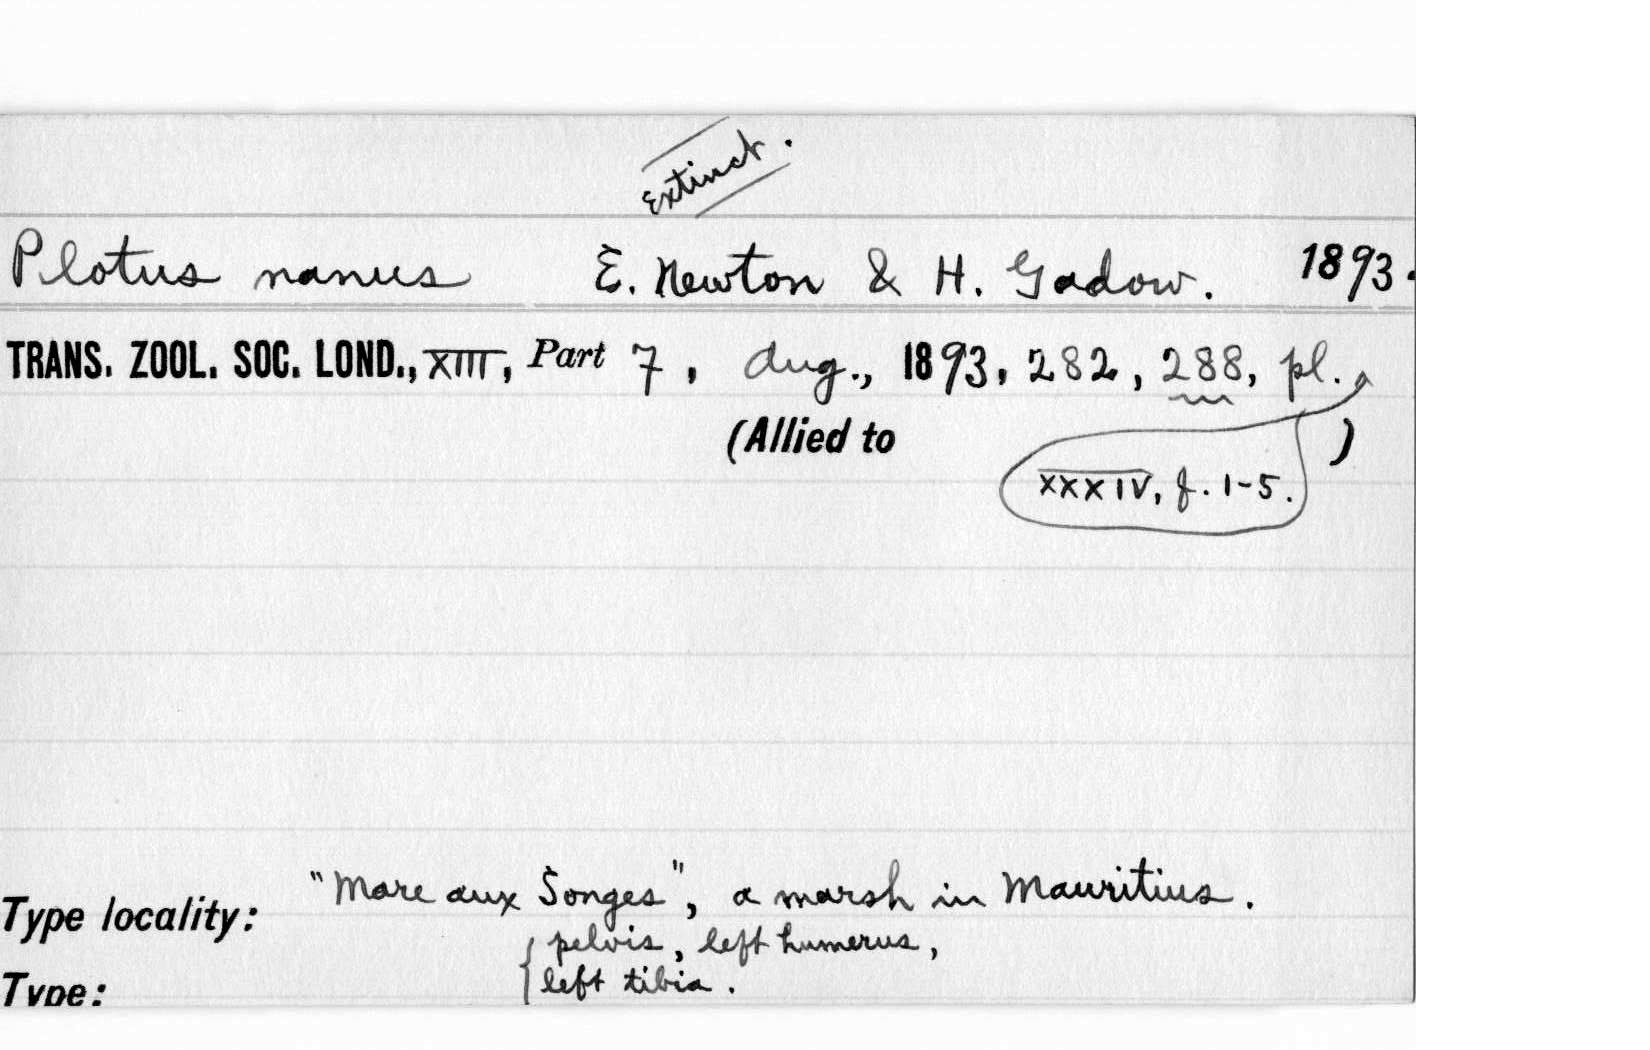 Extinct.
Plotus nanus E. Newton & H. Gadow. 1893.
TRANS. ZOOL. SOC. LOND., XIII, Part 7, Aug., 1893, 282, 288, pl.
(Allied to )
XXXIV, f. 1-5.
Type locality: "Mare aux Songes", a marsh in Mauritius.
pelvis, left humerus,
Type: left tibia.